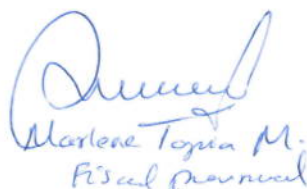 Marlene Tapia M.
Fiscal provincial